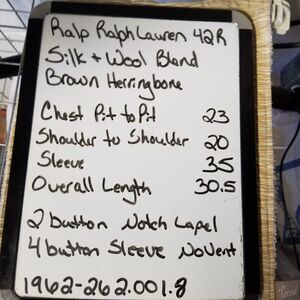 Ralp Ralph Lauren 42R
Silk + Wool Blend
Brown Herringbone
Chest Pit to Pit 23
Shoulder to Shoulder 20
Sleeve 35
Overall Length 30.5
2 button Notch Lapel
4 button Sleeve No Vent
1962-262.001.8